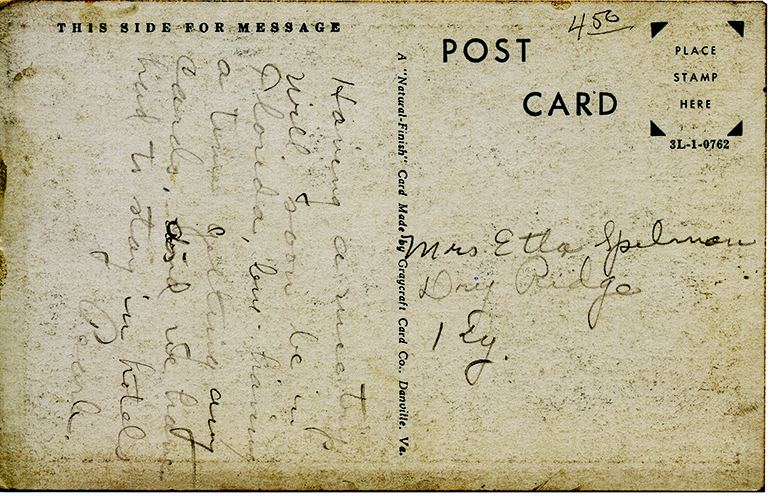 THIS SIDE FOR MESSAGE
Having a nice trip
will soon be in
Florida, but having
a time getting any
cards, and we have
had to stay in hotels
Pearl.
A "Natural-Finish" Card Made by Graycraft Card Co., Danville, Va.
450
POST
CARD
PLACE
STAMP
HERE
3L-1-0762
Mrs Etta Spelman
Dry Ridge
Ky.